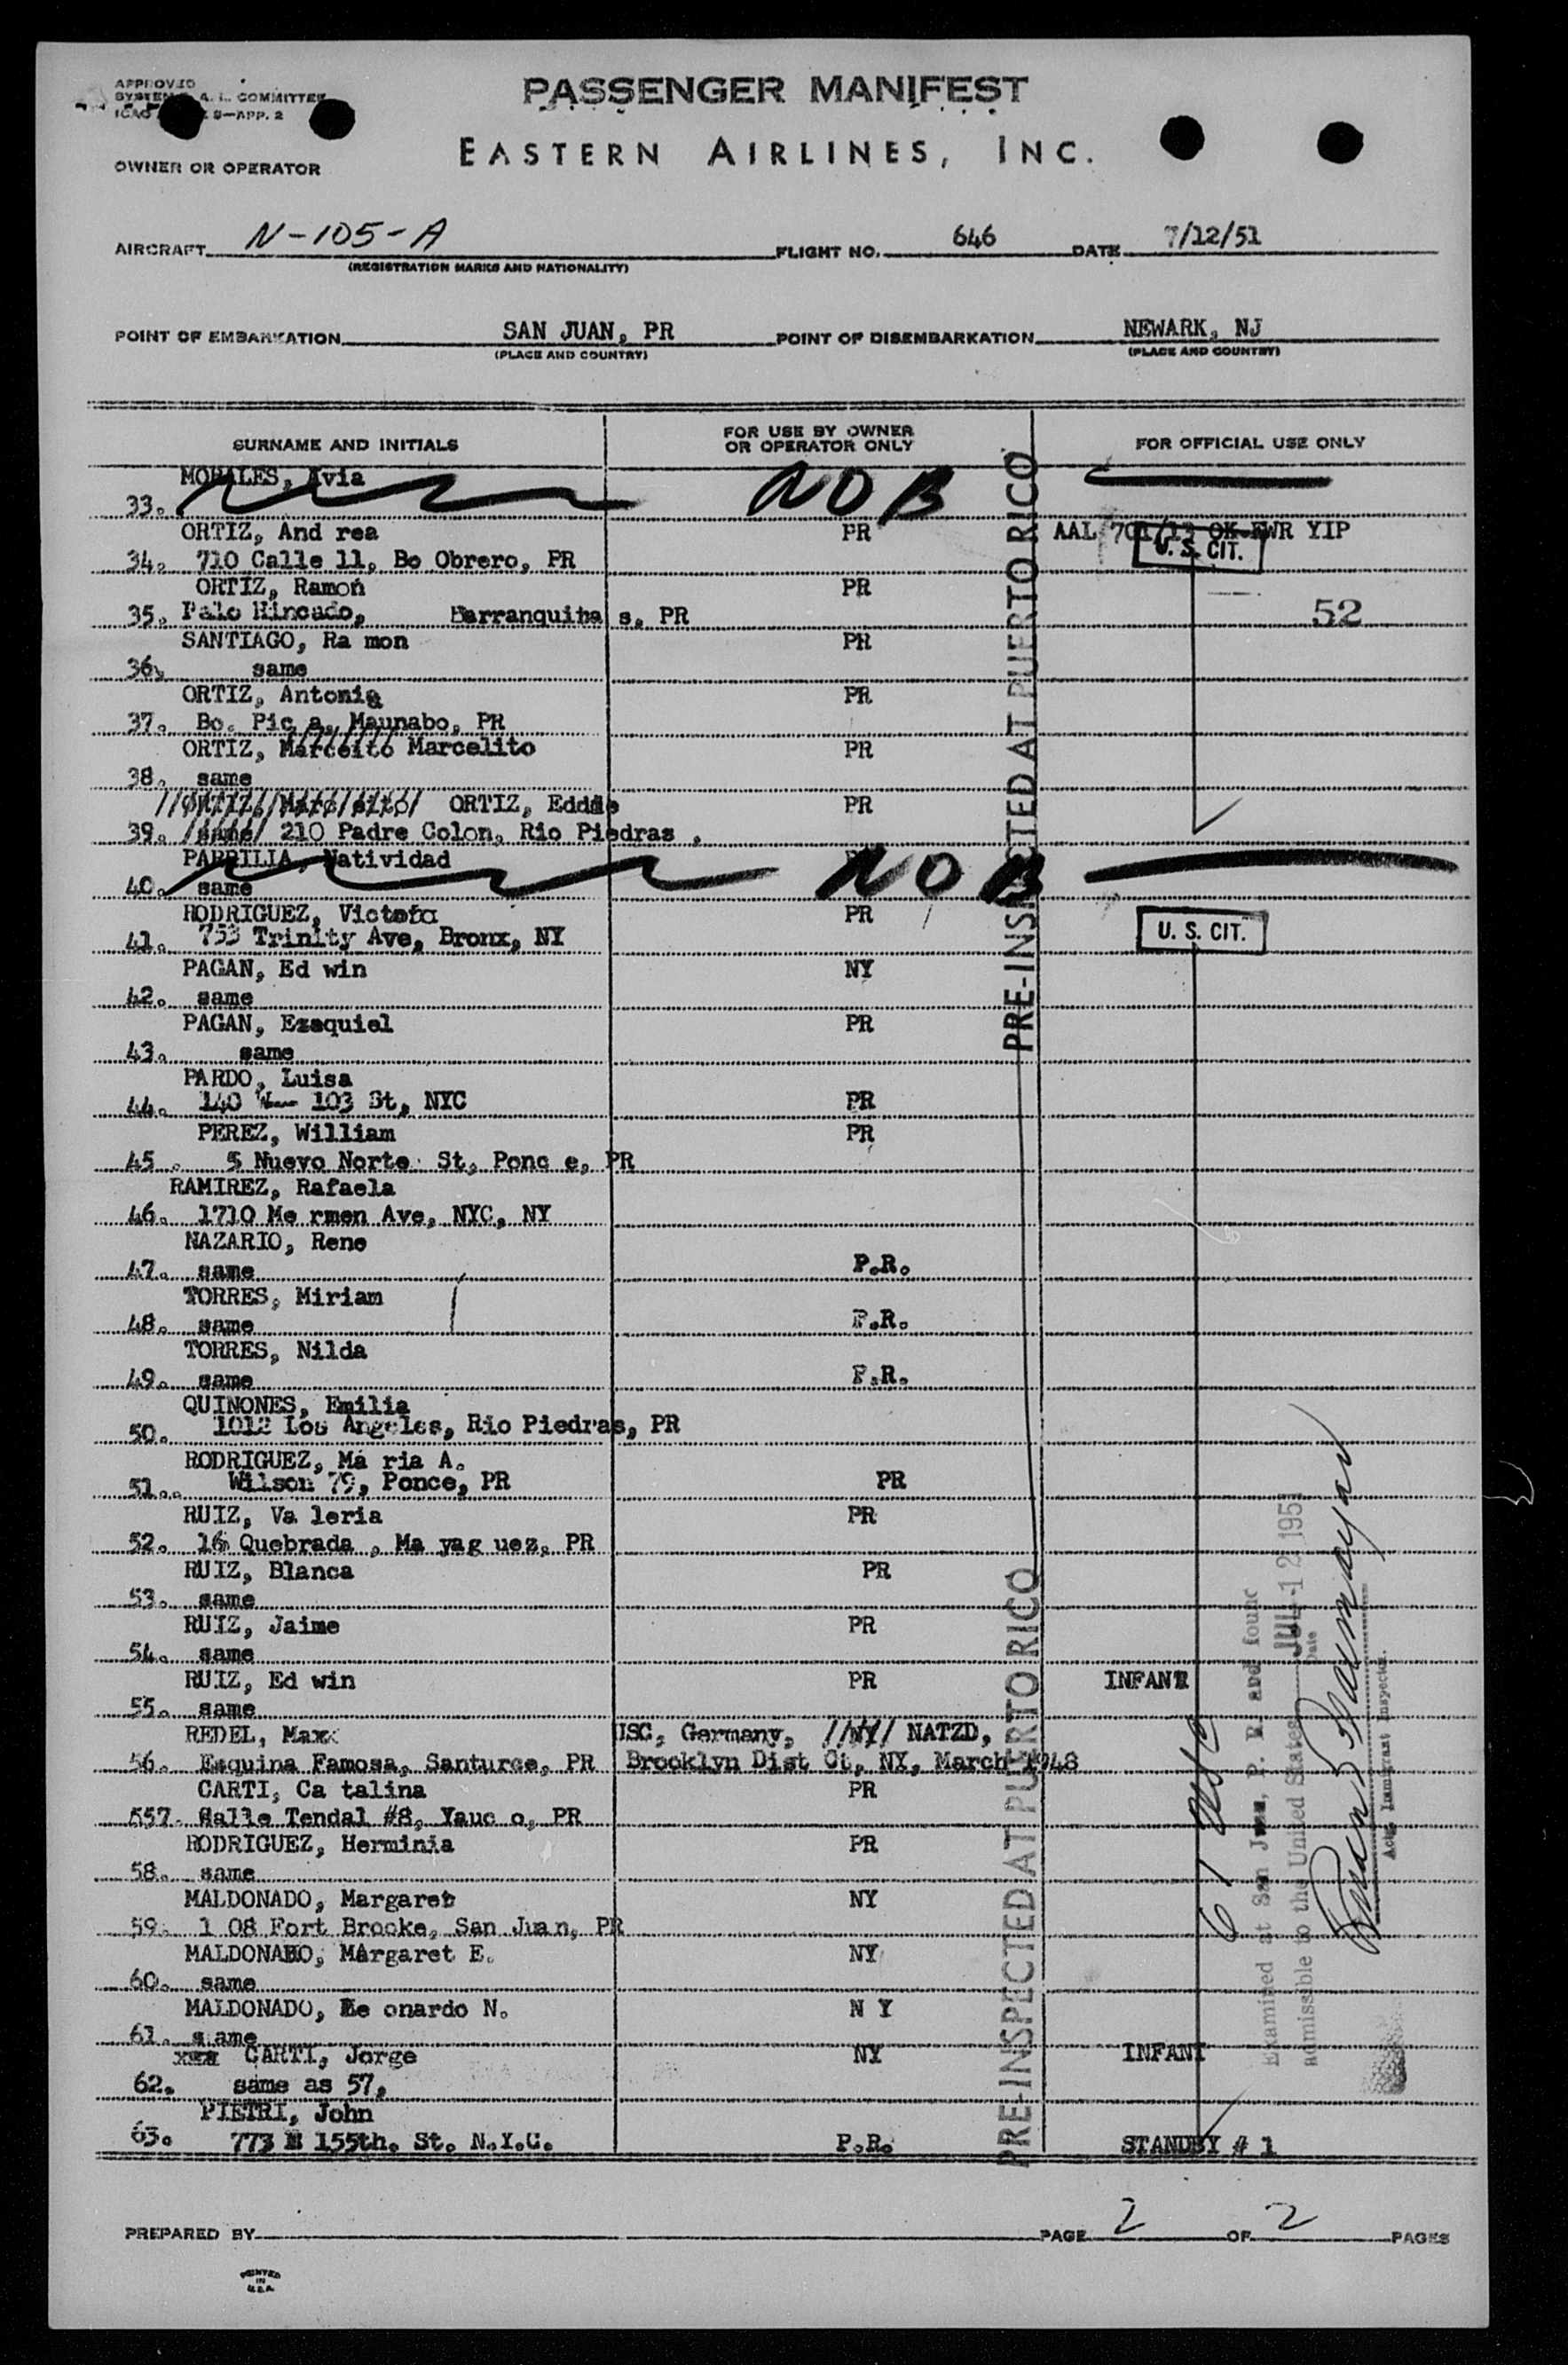 APPROVED
A. I. COMMITTEE
9—APP. 2
PASSENGER MANIFEST
EASTERN AIRLINES, INC.
OWNER OR OPERATOR
AIRCRAFT N-105-A FLIGHT NO. 646 DATE 7/12/51
(REGISTRATION MARKS AND NATIONALITY)
POINT OF EMBARKATION SAN JUAN, PR POINT OF DISEMBARKATION NEWARK, NJ
(PLACE AND COUNTRY) (PLACE AND COUNTRY)
SURNAME AND INITIALS FOR USE BY OWNER OR OPERATOR ONLY FOR OFFICIAL USE ONLY
MORALES, Avia NOB
33.
ORTIZ, And rea PR AAL EWR YIP
U. S. CIT.
34. 710 Calle 11, Bo Obrero, PR
ORTIZ, Ramon PR
35. Palo Hincado, Barranquita s, PR 52
SANTIAGO, Ra mon PR
36. same
ORTIZ, Antonia PR
37. Bo. Pic a, Maunabo, PR
ORTIZ, Marceito Marcelito PR
38. same
ORTIZ, Eddie PR
39. same 210 Padre Colon, Rio Piedras ,
PARRILIA, Natividad NOB
40. same
RODRIGUEZ, PR
41. 753 Trinity Ave, Bronx, NY U. S. CIT.
PAGAN, Ed win NY
42. same
PAGAN, Ezequiel PR
43. same
PARDO, Luisa
44. 140 103 St, NYC PR
PEREZ, William PR
45. 5 Nuevo Norte St, Ponc e, PR
RAMIREZ, Rafaela
46. 1710 Me rmen Ave, NYC, NY
NAZARIO, Rene
47. same P.R.
TORRES, Miriam
48. same P.R.
TORRES, Nilda
49. same P.R.
QUINONES, Emilia
50. 1012 Los Angeles, Rio Piedras, PR
RODRIGUEZ, Ma ria A.
51.. Wilson 79, Ponce, PR PR
RUIZ, Va leria PR
52. 16 Quebrada , Ma yag uez, PR
RUIZ, Blanca PR
53. same
RUIZ, Jaime PR
54. same
RUIZ, Ed win PR INFANT
55. same
REDEL, Max USC, Germany, NATZD,
56. Esquina Famosa, Santurce, PR Brooklyn Dist Ct, NY, March 1948
CARTI, Ca talina PR
557. Calle Tendal #8, Yauc o, PR
RODRIGUEZ, Herminia PR
58. same
MALDONADO, Margaret NY
59. 1 08 Fort Brooke, San Juan, PR
MALDONADO, Margaret E. NY
60. same
MALDONADO, Le onardo N. N Y
61. s ame
CARTI, Jorge NY INFANT
62. same as 57,
PIETRI, John
63. 773 E 155th. St. N.Y.C. P.R. STANDBY # 1
PRE-INSPECTED AT PUERTO RICO
PRE-INSPECTED AT PUERTO RICO
Examined at San Juan, P. R. and found
Admissible to the United States JUL 12 1951
Date
Actg. Immigrant Inspector.
PREPARED BY PAGE 2 OF 2 PAGES
PRINTED
IN
U.S.A.